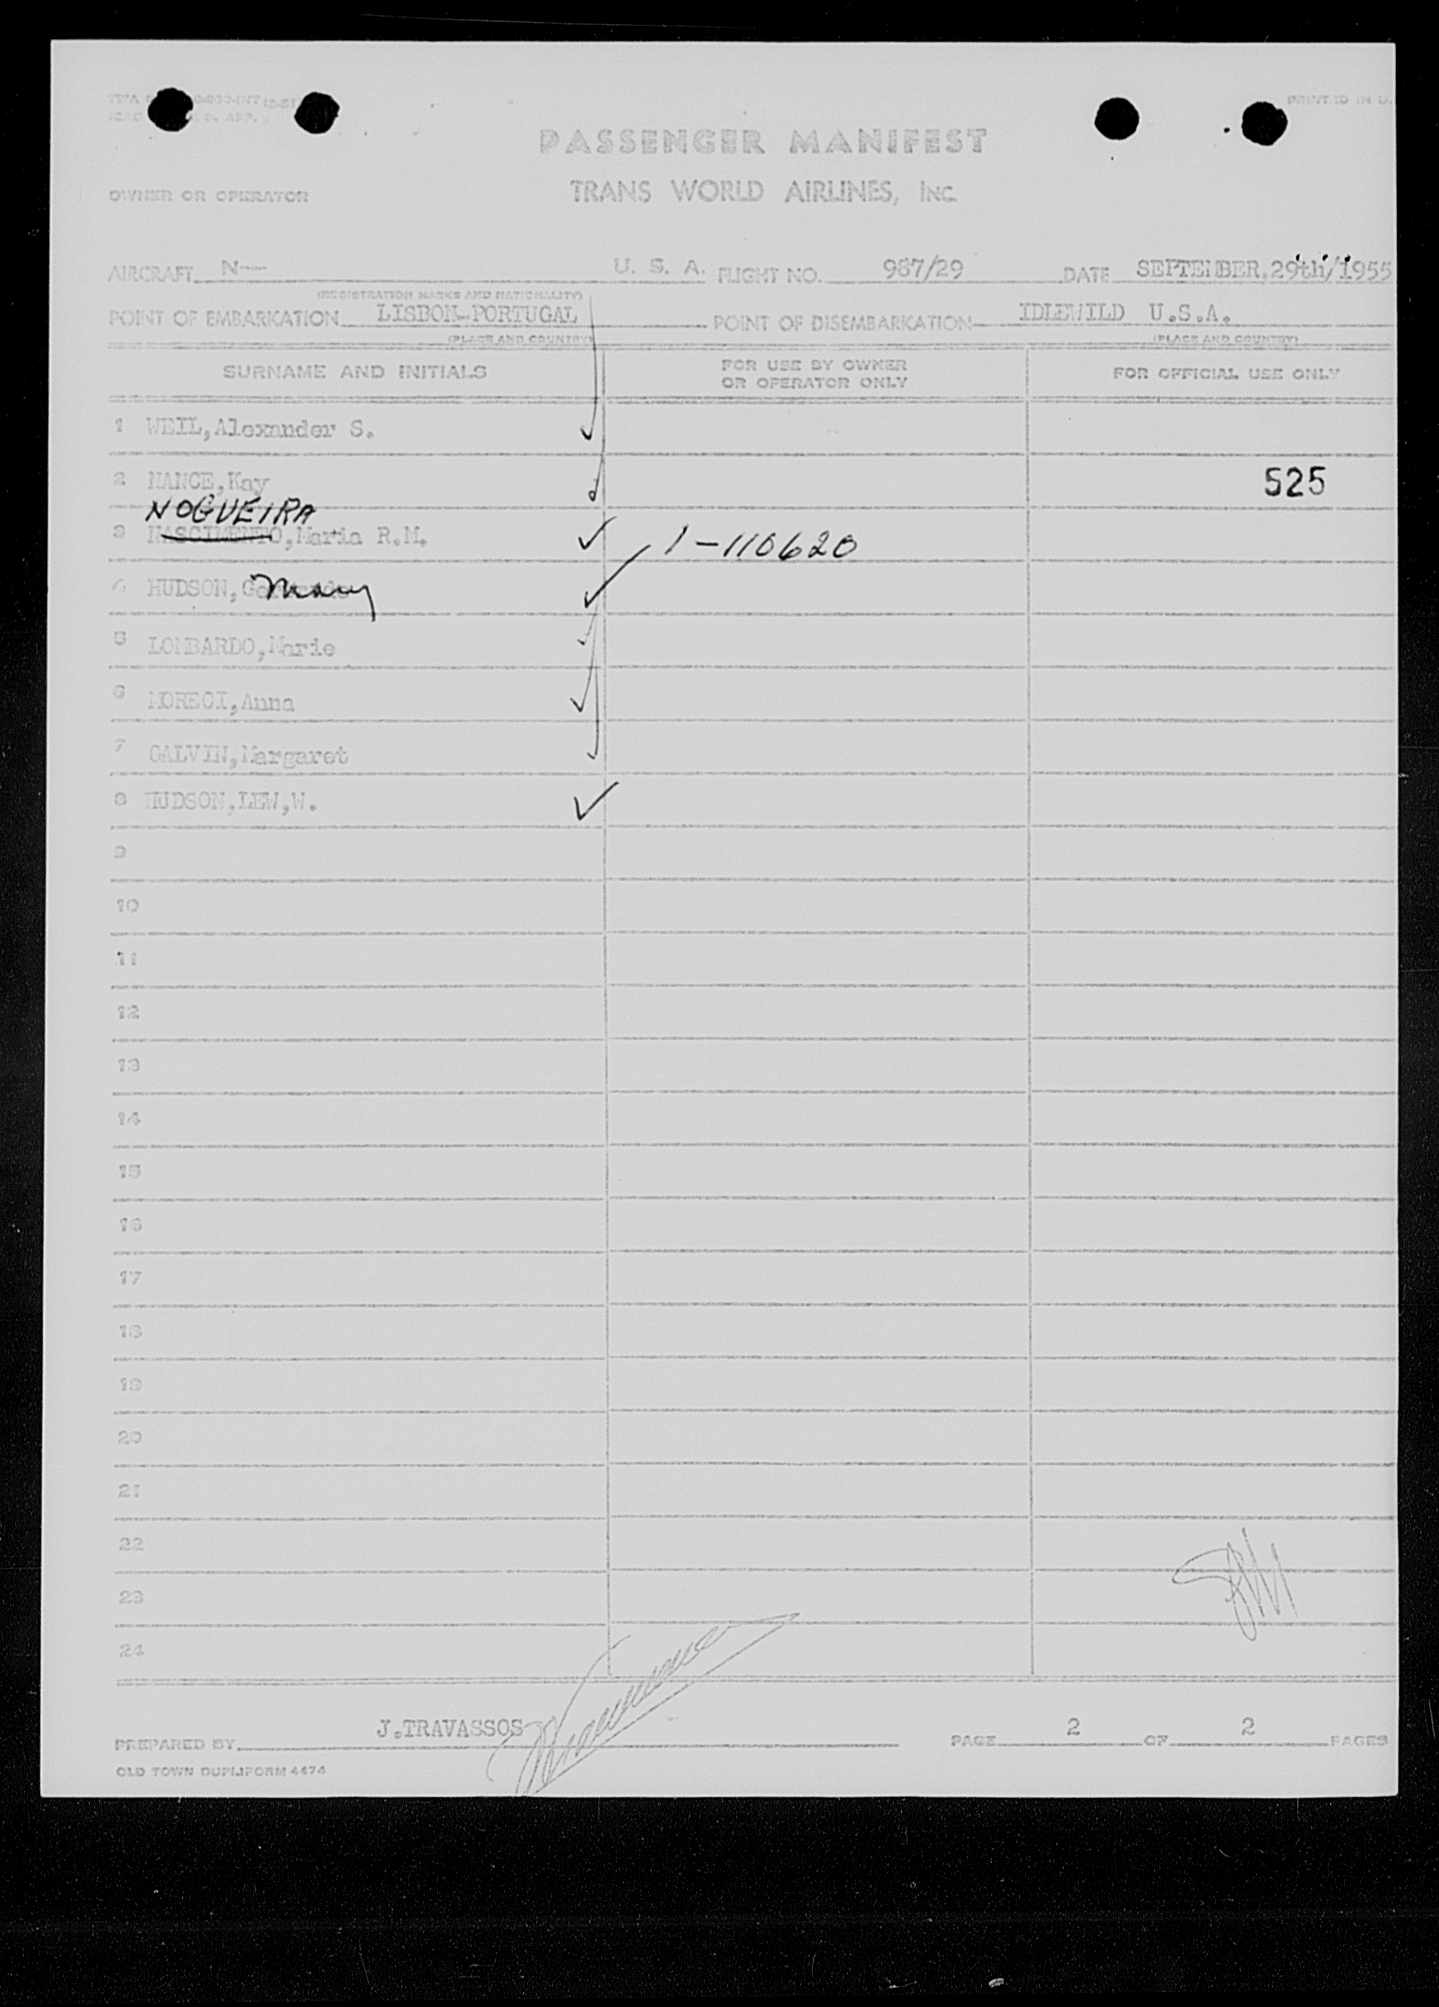 PRINTED IN U.
PASSENGER MANIFEST
OWNER OR OPERATOR TRANS WORLD AIRLINES, INC.
AIRCRAFT N-- U. S. A. FLIGHT NO. 967/29 DATE SEPTEMBER,29th/1955
(REGISTRATION MARKS AND NATIONALITY)
POINT OF EMBARKATION LISBON-PORTUGAL POINT OF DISEMBARKATION IDLEWILD U.S.A.
(PLACE AND COUNTRY) (PLACE AND COUNTRY)
SURNAME AND INITIALS FOR USE BY OWNER OR OPERATOR ONLY FOR OFFICIAL USE ONLY
1 WEIL,Alexander S.
2 NANCE,Kay 525
NOGUEIRA
3 NASCIMENTO,Maria R.M. 1-110620
4 HUDSON, Mary
5 LOMBARDO,Marie
6 MORECI,Anna
7 GALVIN,Margaret
8 HUDSON,LEW,W.
9
10
11
12
13
14
15
16
17
18
19
20
21
22
23
24
PREPARED BY J.TRAVASSOS PAGE 2 OF 2 PAGES
OLD TOWN DUPLIFORM 4474